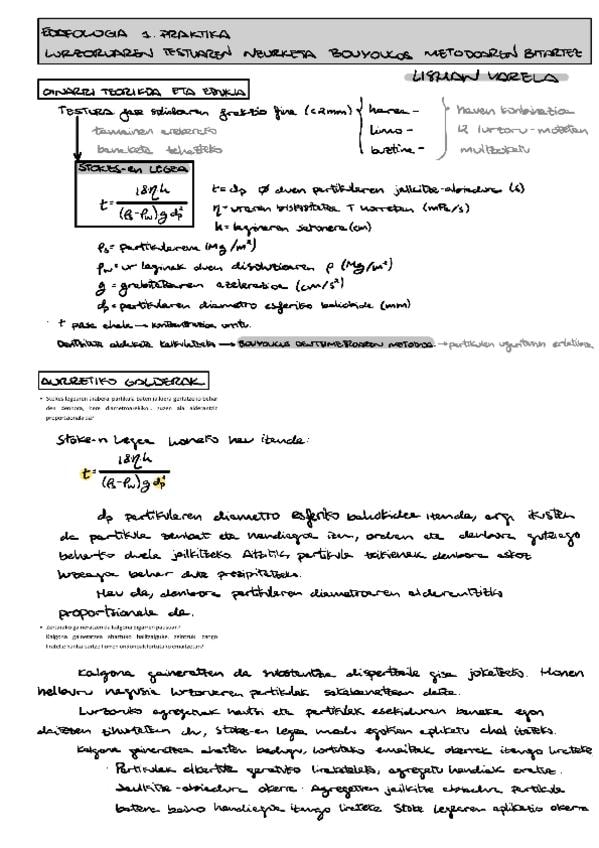 EDAFOLOGIA 1. PRAKTIKA
LURZORUAREN TESTUAREN NEURKETA BOUYOUCOS METODOAREN BITARTEZ
LISMAN VARELA
OINARRI TEORIKOA ETA EDUKIA
TESTURA frakzio fina (<2mm)
harea -
limo -
buztina -
hauen konbinazioa
12 lurzoru-motetan
multzokatu
tamainen araberako
banaketa
STOKES-en LEGEA
t = 18ηh / (ρs-ρw) g dp²
t = dp Ø duen partikularen jalkitze-abiadura (s)
η = uraren biskositatea T horretan (mPa/s)
h = laginaren sakonera (cm)
ρs = partikularena (Mg/m³)
ρw = ur laginak duen disoluzioaren ρ (Mg/m³)
g = grabitatearen azelerazioa (cm/s²)
dp = partikularen diametro esferiko baliokidea (mm)
t pasa ahala → kontzentrazioa
Dentsitate aldaketa kalkulatzeko → BOUYOUCUS DENTSIMETROAREN METODOA → partikulen
AURRETIKO GALDERAK
• Stokes legearen arabera partikula baten jalkiera gertatzeko behar
den denbora, bere diametroarekiko, zuzen ala alderantziz
proportzionala da?
Stoke-n legea honako hau izanda:
t = 18ηh / (ρs-ρw) g dp²
dp partikularen diametro esferiko baliokidea izanda, argi ikusten
da partikula zenbat eta handiagoa izan, orduan eta denbora gutxiago
beharko duela jalkitzeko. Aitzitik, partikula txikienek denbora askoz
luzeagoa behar dute prezipitatzeko.
Hau da, denbora partikularen diametroaren alderantzizko
proportzionala da.
• Zertarako gaineratzen da kalgona bigarren pausoan?
Kalgona gaineratzea ahaztuko balitzaiguke, zeintzuk izango
Kalgona gaineratzen da substantzia dispertsatzaile gisa jokatzeko. Honen
helburu nagusia lurzoruaren partikulak sakabanatzean datza.
Lurzoruko agregatuak hautsi eta partikulak esekiduran banaka egon
daitezen ziurtatzen du, Stokes-en legea modu egokian aplikatu ahal izateko.
Kalgona gaineratzea ahazten badugu, lortutako emaitzak okerrak izango lirateke
· Partikulak elkartuta geratuko liratekeelako, agregatu handiak eratuz.
· Jalkitze-abiadura okerra. Agregatuen jalkitze abiadura partikula
batena baino handiagoa izango lirateke Stoke legearen aplikazio okerra